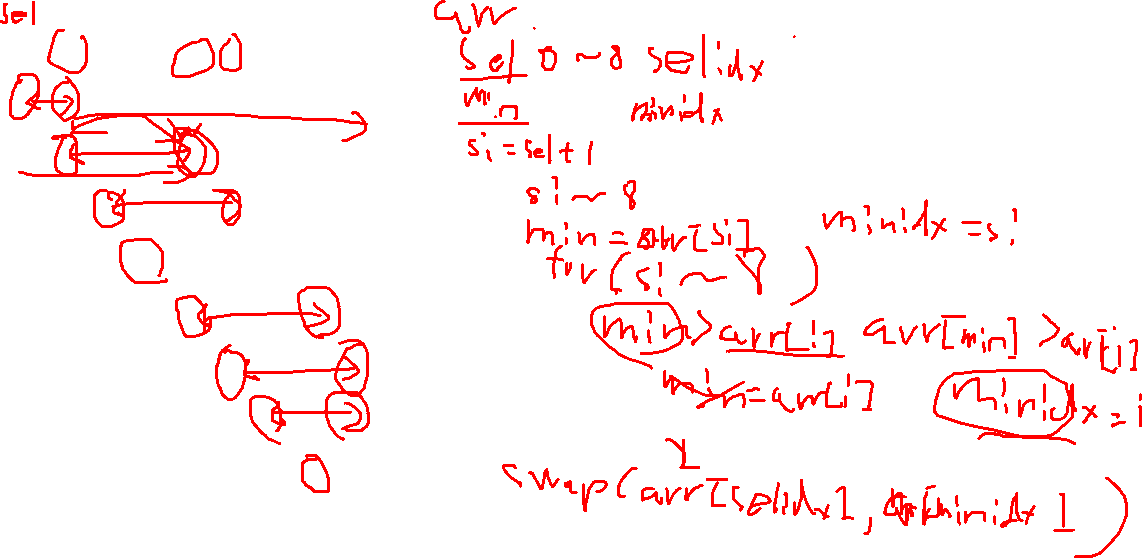 sel
arr
sel 0 ~ 8 selidx
min minidx
si = sel + 1
si ~ 8
min = arr[si] minidx = si
for ( si ~ 8 )
min > arr[i] arr[min] > arr[i]
min = arr[i] minidx = i
swap( arr[selidx], arr[minidx] )